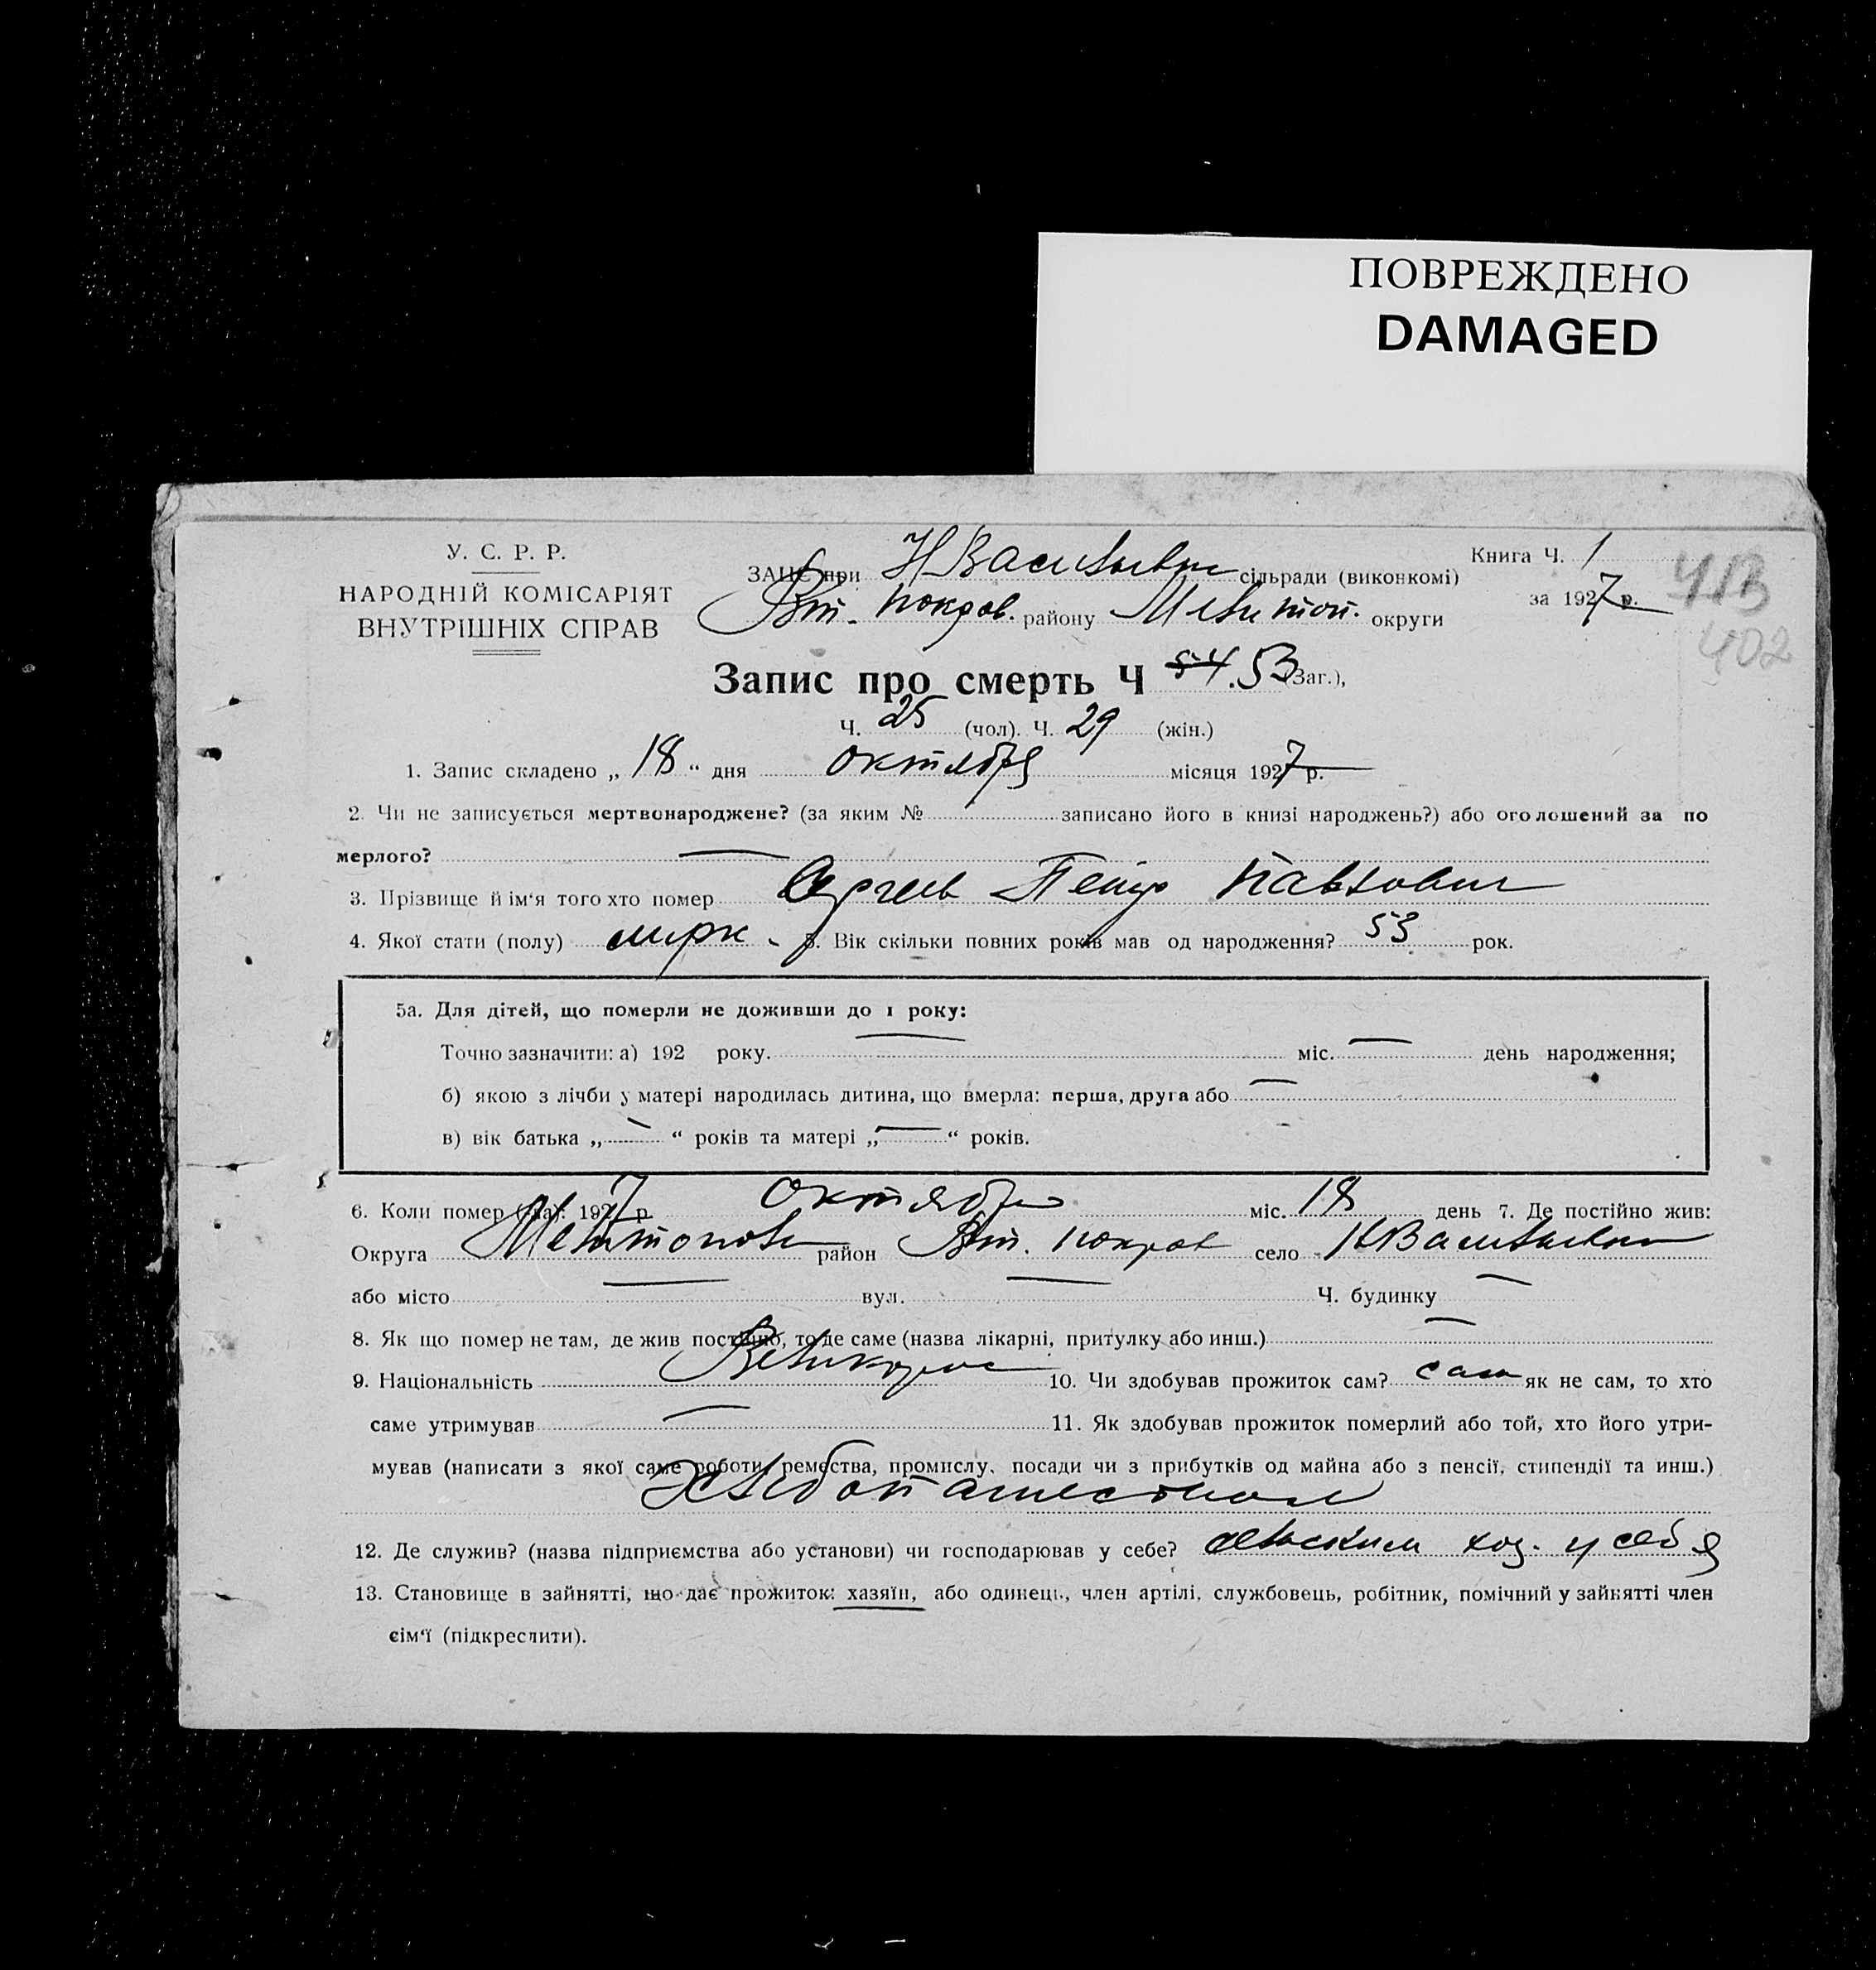 ПОВРЕЖДЕНО
DAMAGED
У. С. Р. Р.
НАРОДНІЙ КОМІСАРІЯТ
ВНУТРІШНІХ СПРАВ
ЗАГС при Н Васильевк сільради (виконкомі)
Вт. Покров. району Мелитоп. округи
Книга Ч. 1
за 1927 р.
402
Запис про смерть Ч 54. 53 (Заг.),
Ч. 25 (чол). Ч. 29 (жін.)
1. Запис складено „ 18 “ дня октября місяця 1927 р.
2. Чи не записується мертвонароджене? (за яким № записано його в книзі народжень?) або оголошений за по
мерлого? —
3. Прізвище й ім‘я того хто помер Сергеев Петр Павлович
4. Якої стати (полу) 5. Вік скільки повних років мав од народження? 53 рок.
5а. Для дітей, що померли не доживши до 1 року:
Точно зазначити: а) 192 року. — міс. — день народження;
б) якою з лічби у матері народилась дитина, що вмерла: перша, друга або —
в) вік батька „ — “ років та матері „ — “ років.
6. Коли помер (ла): 1927 р. Октября міс. 18 день 7. Де постійно жив:
Округа Мелитополь район Вт. Покров село Н Васильевка
або місто — вул. — Ч. будинку —
8. Як що помер не там, де жив постійно, то де саме (назва лікарні, притулку або инш.) —
9. Національність Великорос 10. Чи здобував прожиток сам? сам як не сам, то хто
саме утримував — 11. Як здобував прожиток померлий або той, хто його утри-
мував (написати з якої саме роботи, ремества, промислу, посади чи з прибутків од майна або з пенсії, стипендії та инш.)
Хлебопашеством
12. Де служив? (назва підприємства або установи) чи господарював у себе? сельским хоз. у себя
13. Становище в зайнятті, що дає прожиток: хазяїн, або одинець, член артілі, службовець, робітник, помічний у зайнятті член
сім‘ї (підкреслити).